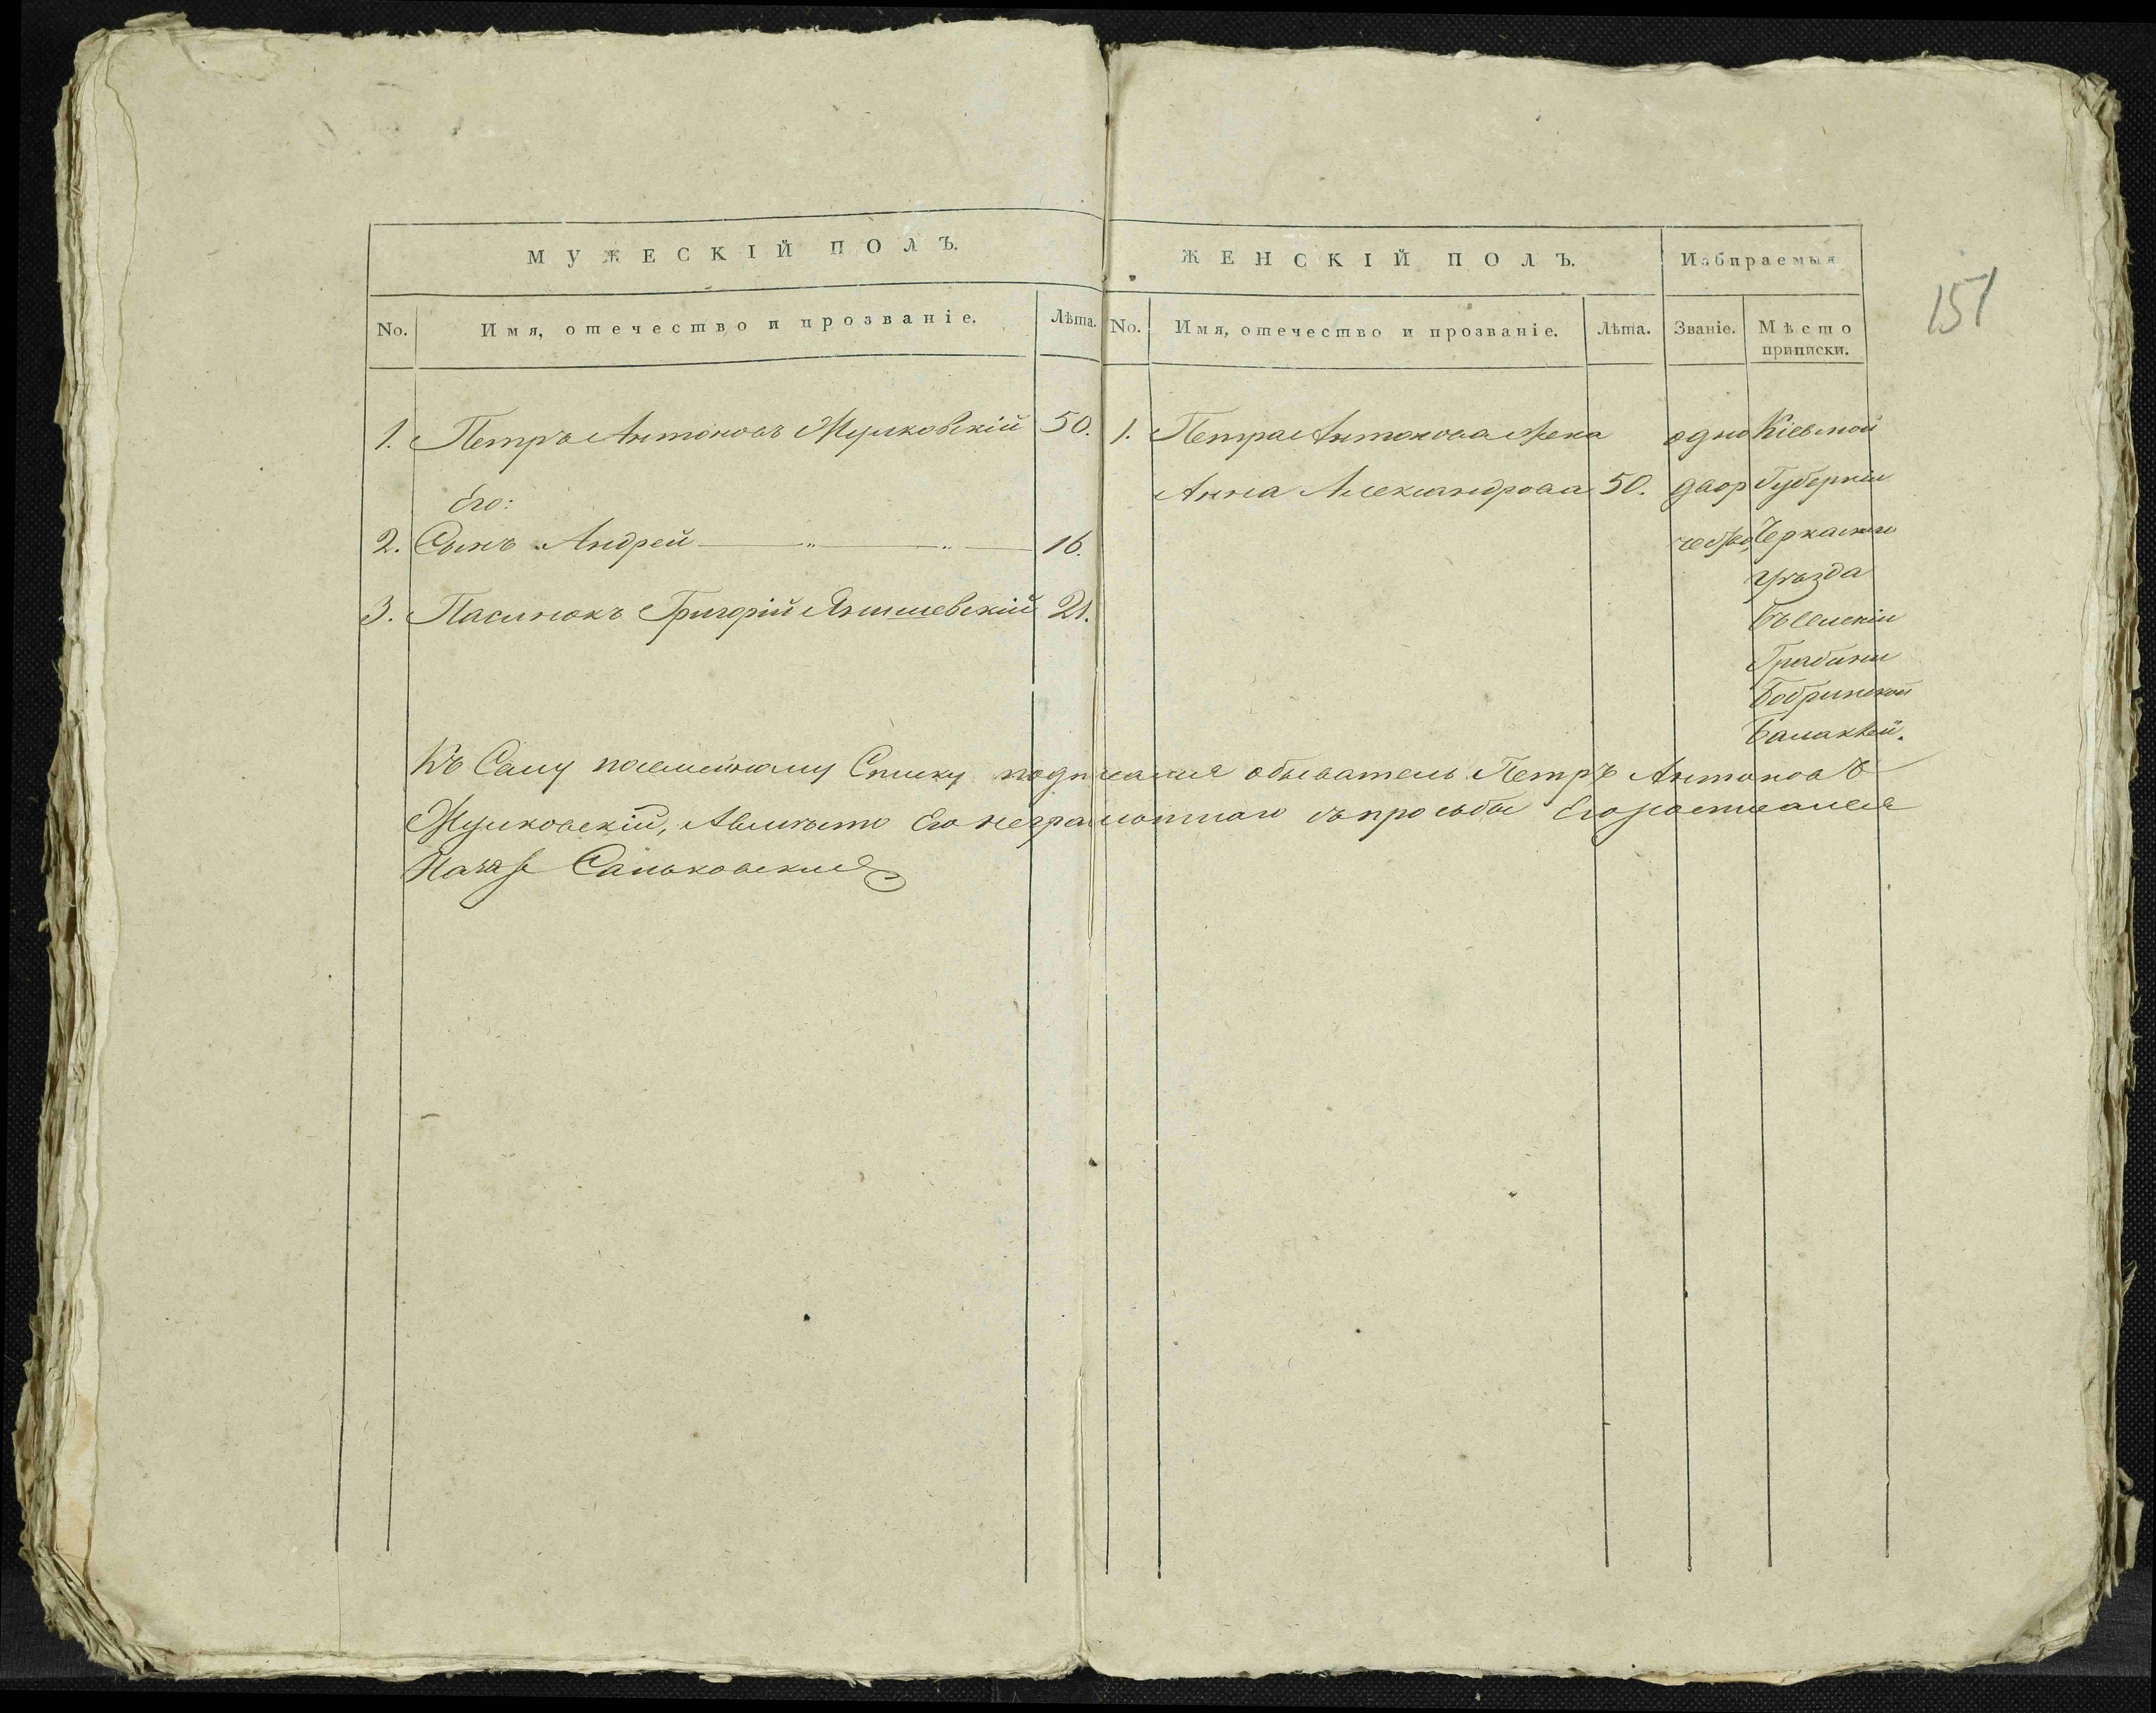 МУЖЕСКІЙ ПОЛЪ.
No. Имя, отечество и прозваніе. Лѣта.
1. Петръ Антоновъ Жулковскій 50.
Его:
2. Сынъ Андрей — „ — „ — 16.
3. Пасинокъ Григорій Янишевскій 21.
ЖЕНСКІЙ ПОЛЪ. Избираемыя
No. Имя, отечество и прозваніе. Лѣта. Званіе. Мѣсто
приписки.
151
1. Петра Антонова жена одно Кіевской
Анна Александрова 50. двор Губерніи
Черкаскаго
уѣзда
Въ селеніи
Графини
Бобринской
Балаклей.
Къ Сему посемейному Списку подписался обыватель Петръ Антоновъ
Жулковскій, Авмѣсто Его неграмотнаго съ просьбы Его росписался